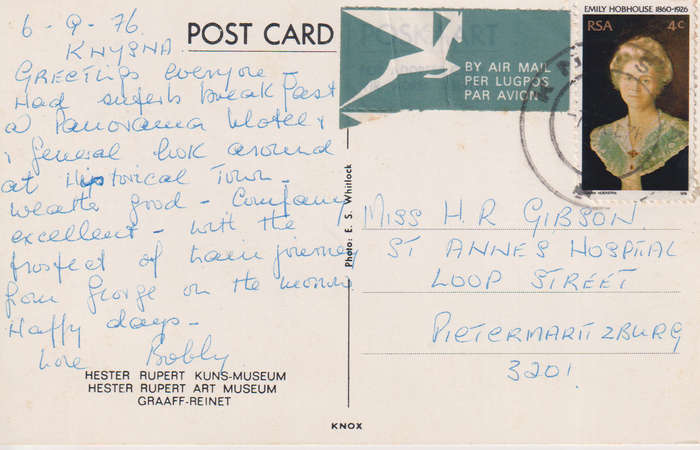 6-9-76.
KNYSNA
POST CARD
Greetings everyone -
Had superb Breakfast
a Panorama Motel &
a general look around
at Historical Town -
weather good - Company
excellent - with the
prospect of train journey
from George on the morrow
Happy days -
Love Bobby
HESTER RUPERT KUNS-MUSEUM
HESTER RUPERT ART MUSEUM
GRAAFF-REINET
Photo: E. S. Whitlock
KNOX
BY AIR MAIL
PER LUGPOS
PAR AVION
EMILY HOBHOUSE 1860-1926
RSA 4c
MISS H.R GIBSON
ST ANNES HOSPITAL
LOOP STREET
PIETERMARITZBURG
3201.